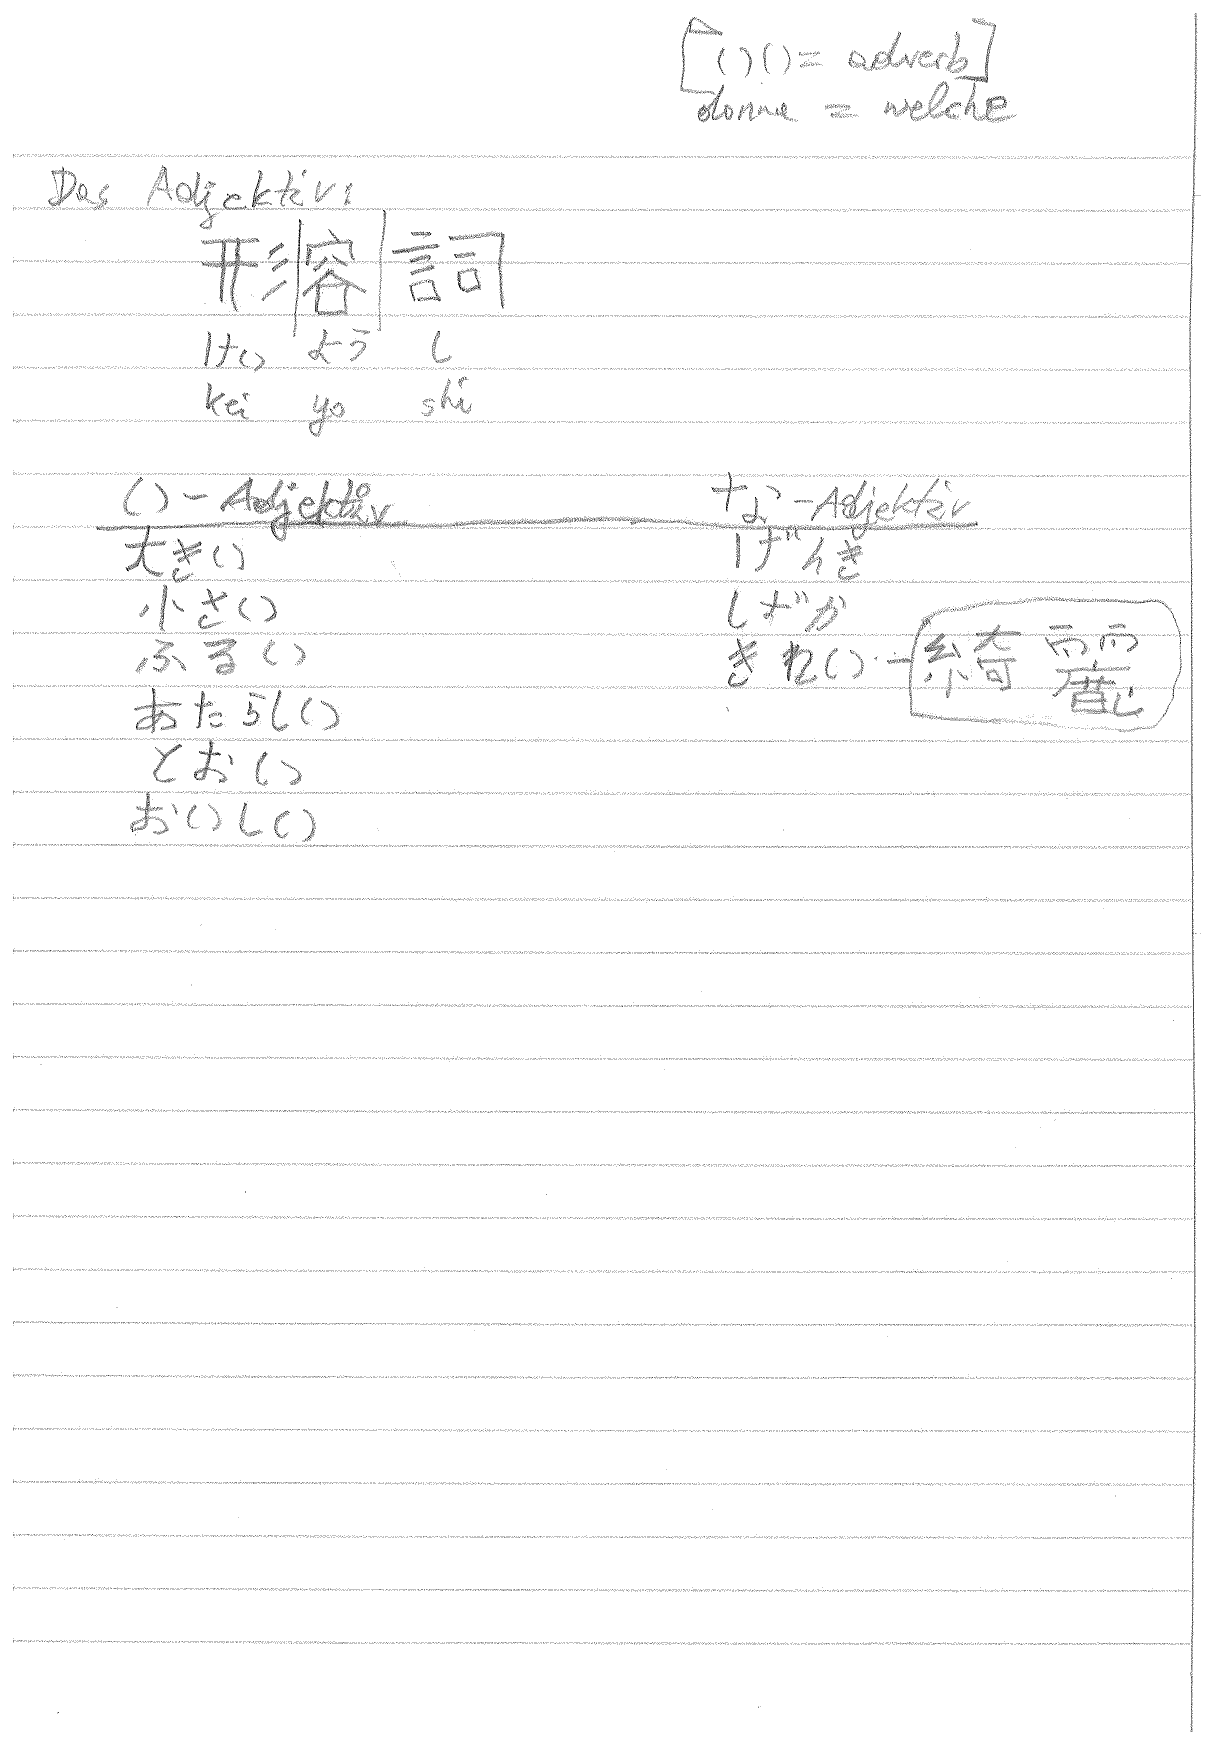 [いい = adverb]
donna = welche
Das Adjektiv:
形容詞
けい よう し
kei yo shi
い-Adjektiv な-Adjektiv
大きい げんき
小さい しずか
ふるい きれい - 綺麗
あたらしい
とおい
おいしい